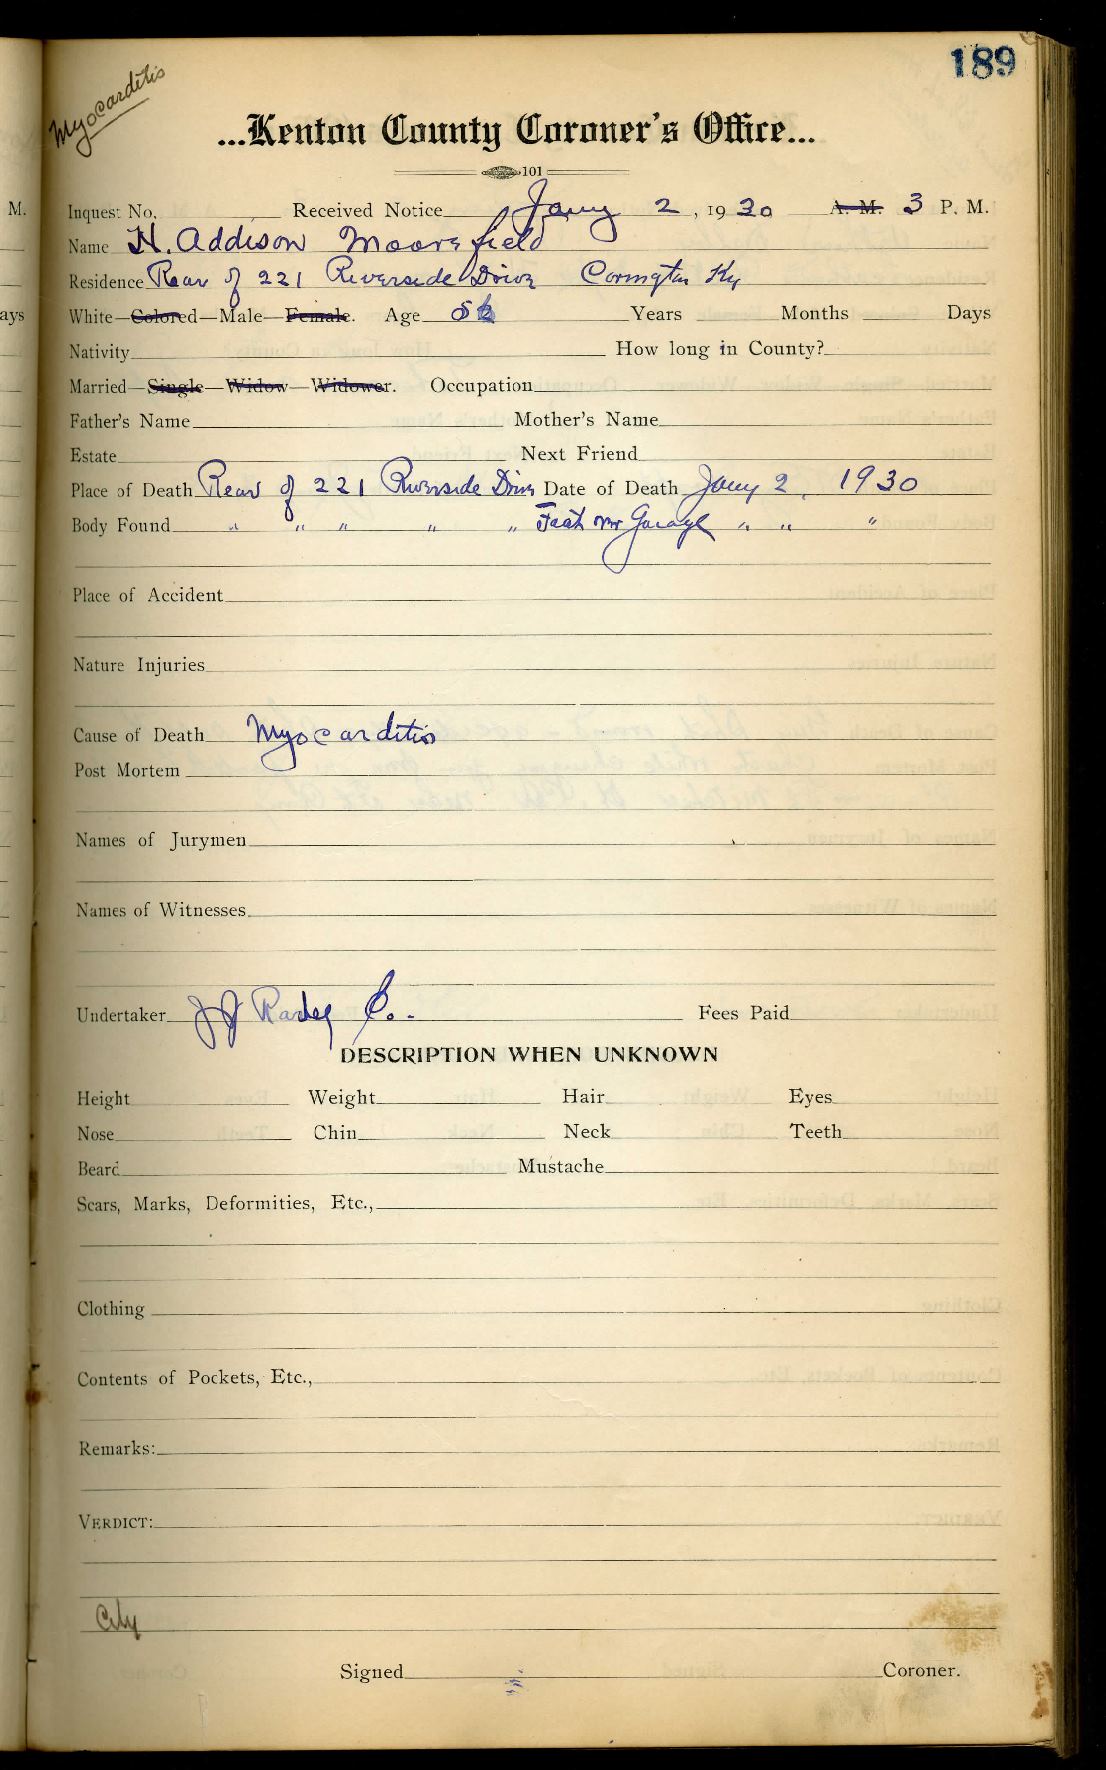 189
Myocarditis
...Kenton County Coroner's Office...
101
M. Inquest No. Received Notice Jany 2, 1930 A. M. 3 P. M.
Name H. Addison Moorefield
Residence Rear of 221 Riverside Drive Covington Ky
ays White—Colored—Male—Female. Age Years Months Days
Nativity How long in County?
Married—Single—Widow—Widower. Occupation
Father's Name Mother's Name
Estate Next Friend
Place of Death Rear of 221 Riverside Drive Date of Death Jany 2, 1930
Body Found " " " " " Garage " " "
Place of Accident
Nature Injuries
Cause of Death Myocarditis
Post Mortem
Names of Jurymen
Names of Witnesses
Undertaker J J Radel Co.
Fees Paid
DESCRIPTION WHEN UNKNOWN
Height Weight Hair Eyes
Nose Chin Neck Teeth
Beard Mustache
Scars, Marks, Deformities, Etc.,
Clothing
Contents of Pockets, Etc.,
Remarks:
VERDICT:
City
Signed Coroner.